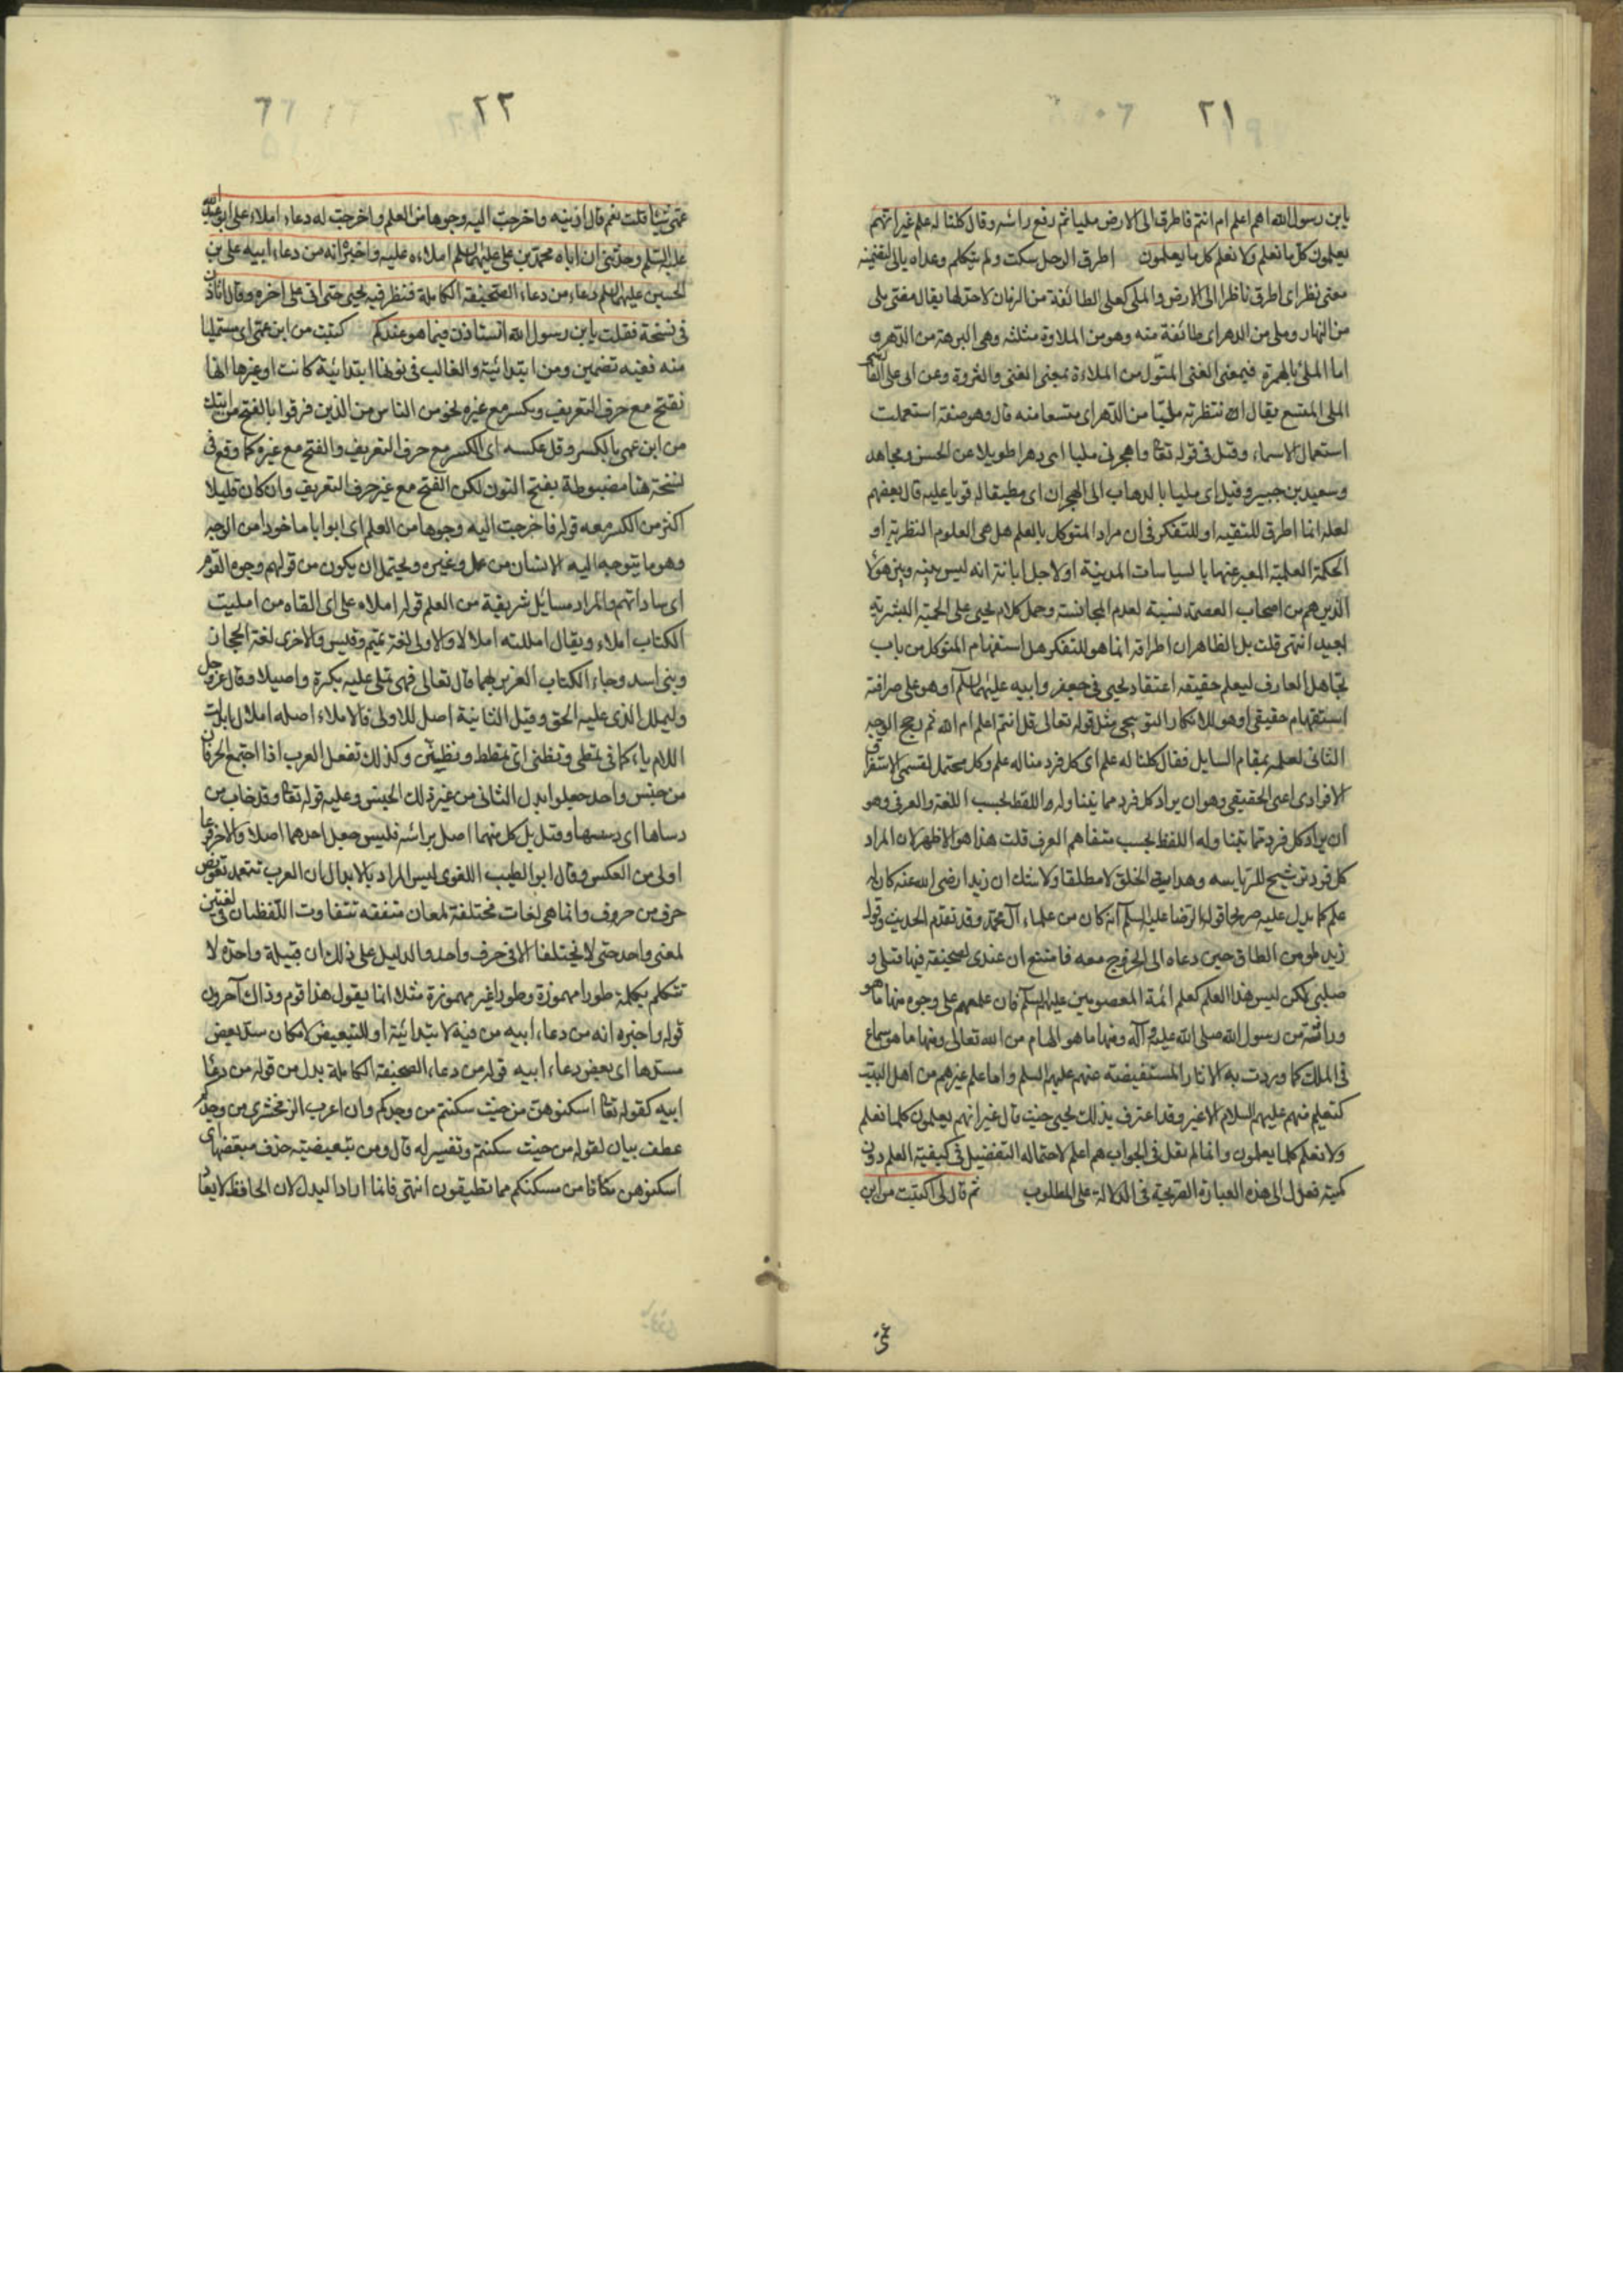 ٢١
يابن رسول الله اهم اعلم ام انتم فاطرق الى الارض مليا ثم رفع راسه وقال كلنا له علم غير انهم
يعلمون كل ما نعلم ولا نعلم كل ما يعلمون اطرق الرجل سكت ولم يتكلم وعداه بالى لتضمينه
معنى نظر اى اطرق ناظرا الى الارض والملى كعلى الطائفة من الزمان لا حد لها يقال مضى ملى
من النهار وملى من الدهر اى طائفة منه وهو من الملاوة مثلثه وهى البرهة من الدهر و
اما الملئ بالهمزة فبمعنى الغنى المتمول من الملاءة بمعنى الغنى والثروة وعن ابى على الفارسى
الملى المتسع يقال انتظرته مليا من الدهر اى متسعا منه قال وهو صفة استعملت
استعمال الاسماء وقيل فى قوله تعالى واهجرنى مليا اى دهرا طويلا عن الحسن ومجاهد
وسعيد بن جبير وقيل اى مليا بالذهاب الى الهجران اى مطيقا له قويا عليه قال بعضهم
لعله انما اطرق للتقيه او للتفكر فى ان مراد المتوكل بالعلم هل هى العلوم النظرية او
الحكمة العلمية المعبر عنها بالسياسات المدنية او لاجل ابانة انه ليس بينه وبين هؤلاء
الذين هم من اصحاب العصمة نسبة لعدم المجانسة وحمل كلام يحيى على الحمية البشرية
بعيد انتهى قلت بل الظاهر ان اطراقه انما هو للتفكر هل استفهام المتوكل من باب
تجاهل العارف ليعلم حقيقة اعتقاد يحيى فى جعفر وابيه عليهما السلم او هو على صرافة
استفهام حقيقى او هو للانكار التوبيخى مثل قوله تعالى قل انتم اعلم ام الله ثم رجح الوجه
الثانى لعلمه بمقام السايل فقال كلنا له علم اى كل فرد منا له علم وكل محتمل لقسمى الاستغراق
الافرادى اعنى الحقيقى وهو ان يراد كل فرد مما يتناوله اللفظ بحسب اللغة والعرفى وهو
ان يراد كل فرد مما يتناوله اللفظ بحسب متفاهم العرف قلت هذا هو الاظهر لان المراد
كل فرد ترشيح للرياسه وهداية الخلق لا مطلقا ولا شك ان زيدا رضى الله عنه كان له
علم كما يدل عليه صريحا قول الرضا عليه السلم انه كان من علماء آل محمد وقد تقدم الحديث وقول
زيد لمؤمن الطاق حين دعاه الى الخروج معه فامتنع ان عندى لصحيفة فيها قتلى و
صلبى لكن ليس هذا العلم كعلم ائمة المعصومين عليهم السلم فان علمهم على وجوه منها ما هو
وراثة من رسول الله صلى الله عليه وآله ومنها ما هو الهام من الله تعالى ومنها ما هو سماع
من الملك كما وردت به الاثار المستفيضة عنهم عليهم السلم واما علم غيرهم من اهل البيت
كتعليم منهم عليهم السلام لا غير وقد اعترف بذلك يحيى حيث قال غير انهم يعلمون كلما نعلم
ولا نعلم كلما يعلمون وانما لم يقل فى الجواب هم اعلم لاحتماله التفضيل فى كيفية العلم دون
كميته فعدل الى هذه العبارة الصريحة فى الدلالة على المطلوب ثم قال لى اكتبت من ابن
عمى
٢٢
عمى شيئا قلت نعم قال ارنيه واخرجت اليه وجوها من العلم واخرجت له دعاء املاه على ابو عبد الله
عليه السلم وحدثنى ان اباه محمد بن على عليهما السلم املاه عليه واخبره انه من دعاء ابيه على بن
الحسين عليهما السلم دعاء من دعاء الصحيفة الكاملة فنظر فيه يحيى حتى اتى على اخره وقال اتاذن
فى نسخه فقلت يابن رسول الله اتستاذن فيما هو عندكم كتبت من ابن عمى اى مستمليا
منه ففيه تضمين ومن ابتدائية والغالب فى نونها ابتدائية كانت او غيرها انها
تفتح مع حرف التعريف وتكسر مع غيره نحو من الناس من الذين فرقوا بالفتح من ابنك
من ابن عمى بالكسر وقل عكسه اى الكسر مع حرف التعريف والفتح مع غيره كما وقع فى
نسخة هنا مضبوطة بفتح النون لكن الفتح مع غير حرف التعريف وان كان قليلا
اكثر من الكسر معه قوله فاخرجت اليه وجوها من العلم اى ابوابا ماخوذا من الوجه
وهو ما يتوجه اليه الانسان من عمل وغيره ويحتمل ان يكون من قولهم وجوه القوم
اى ساداتهم والمراد مسائل شريفة من العلم قوله املاه على اى القاه من امليت
الكتاب املاء ويقال امللته املالا والاولى لغة تميم وقيس والاخرى لغة الحجاز
وبنى اسد وجاء الكتاب العزيز بهما قال تعالى فهى تملى عليه بكرة واصيلا وقال عز وجل
وليملل الذى عليه الحق وقيل الثانية اصل للاولى فالاملاء اصله املال ابدلت
اللام ياء كما فى تمطى وتظنى اى تمطط وتظنن وكذلك تفعل العرب اذا اجتمع الحرفان
من جنس واحد جعلوا بدل الثانى من غير ذلك الجنس وعليه قوله تعالى وقد خاب من
دساها اى دسسها وقيل بل كل منهما اصل براسه فليس جعل احدهما اصلا والاخر فرعا
اولى من العكس وقال ابو الطيب اللغوى ليس المراد بالابدال ان العرب تتعمد تعويض
حرف من حروف وانما هى لغات مختلفة لمعان متفقه تتفاوت اللفظتان فى لغتين
لمعنى واحد حتى لا يختلفا الا فى حرف واحد والدليل على ذلك ان قبيلة واحدة لا
تتكلم بكلمة طورا مهموزة وطورا غير مهموزة مثلا انما يقول هذا قوم وذاك آخرون
قوله واخبره انه من دعاء ابيه من فيه لابتدائية او للتبعيض لامكان سد بعض
مسدها اى بعض دعاء ابيه قوله من دعاء الصحيفة الكاملة بدل من قوله من دعاء
ابيه كقوله تعالى اسكنوهن من حيث سكنتم من وجدكم وان اعرب الزمخشرى من وجدكم
عطف بيان لقوله من حيث سكنتم وتفسير له قال ومن تبعيضية حذف مبعضها اى
اسكنوهن مكانا من مسكنكم مما تطيقون انتهى فانما اراد البدل لان الخافظ لا يعاد